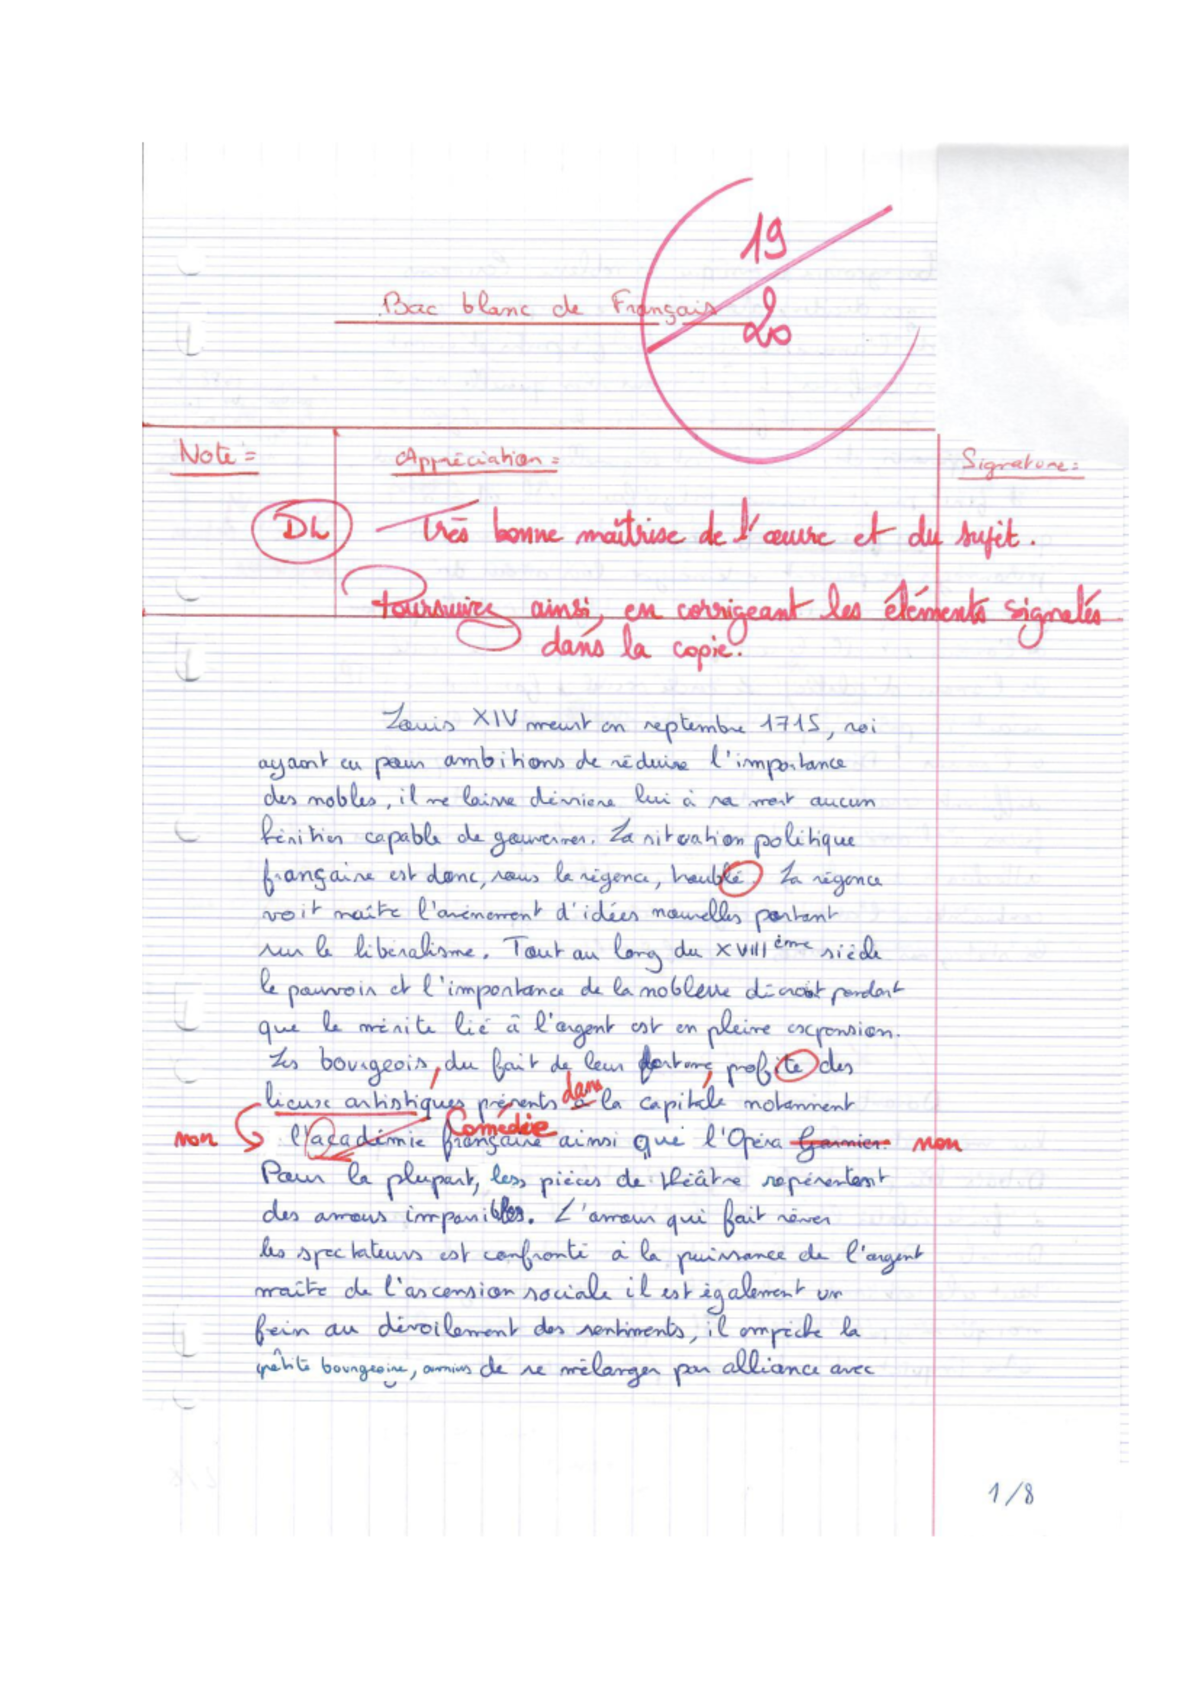 19
20
Bac blanc de Français
Note :
Appréciation :
Signature :
DL
Très bonne maîtrise de l'œuvre et du sujet.
Poursuivez ainsi, en corrigeant les éléments signalés
dans la copie.
Louis XIV meurt en septembre 1715, roi
ayant eu pour ambitions de réduire l'importance
des nobles, il ne laisse dérrière lui à sa mort aucun
héritier capable de gouverner. La situation politique
française est donc, sous la régence, troublé. La régence
voit naître l'avènement d'idées nouvelles portant
sur le libéralisme. Tout au long du XVIIIème siècle
le pouvoir et l'importance de la noblesse décroit pendant
que le mérite lié à l'argent est en pleine expension.
Les bourgeois, du fait de leur fortune, profite des
lieux artistiques présents à dans la capitale notamment
non l'académie Comédie française ainsi que l'Opéra Garnier. non
Pour la plupart, les pièces de théâtre représentent
des amours impossibles. L'amour qui fait rêver
les spectateurs est confronté à la puissance de l'argent
maître de l'ascension sociale il est également un
frein au dévoilement des sentiments, il empêche la
petite bourgeoisie, de se mélanger par alliance avec
1/8